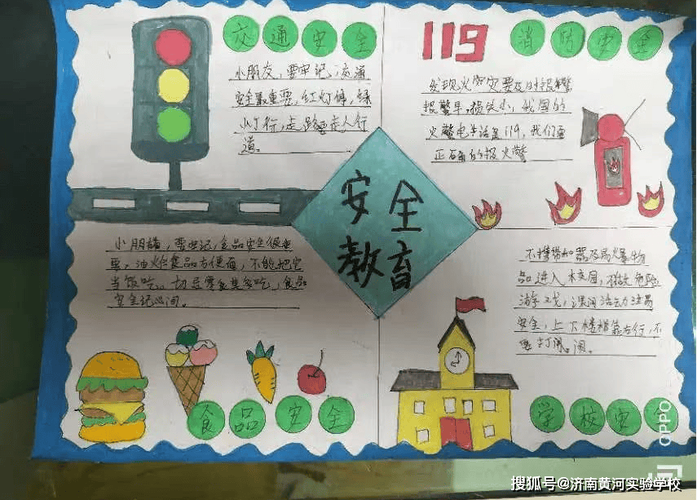 交通安全
小朋友,要牢记,交通
安全最重要,红灯停,绿
灯行,走路要走人行
道。
119
消防安全
发现火灾要及时报警
报警早,损失小,我国的
火警电话是119,我们要
正确的报火警
安全
教育
小朋友,要牢记,食品安全很重
要,油炸食品方便面,不能把它
当饭吃。
安全记心间。
食品安全
品进入校园,
安全,上下楼梯靠右行,不
要打闹。
学校安全
OPPO
搜狐号@济南黄河实验学校